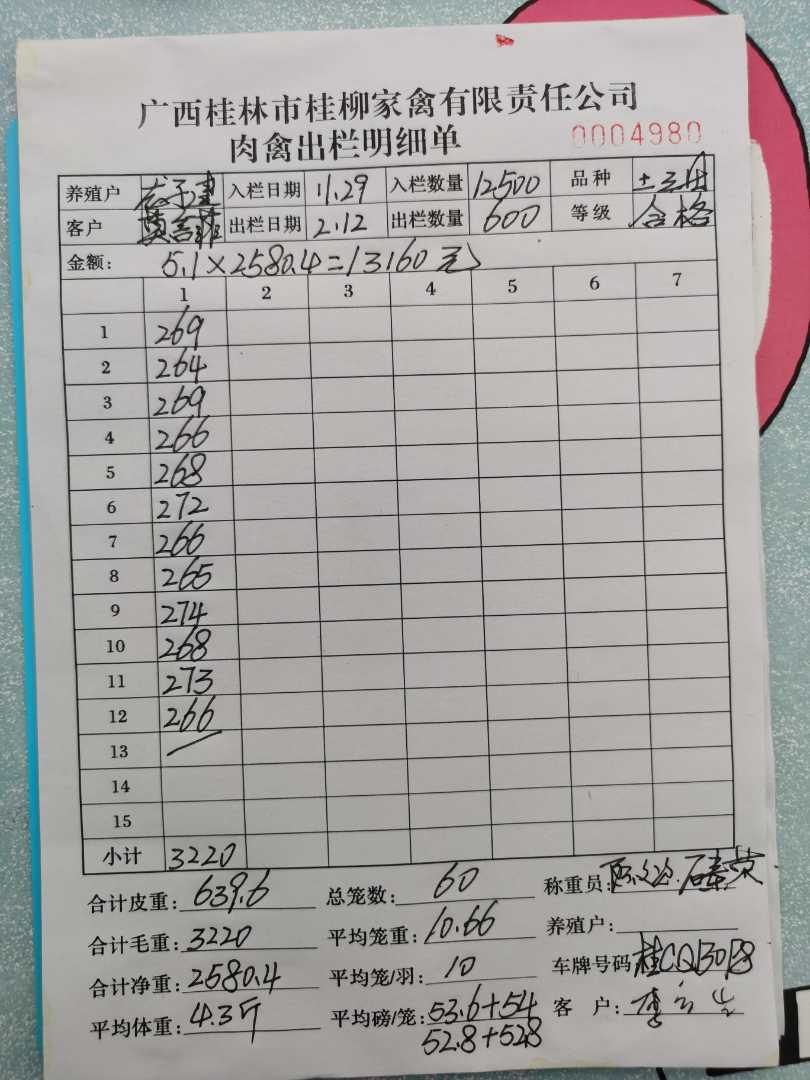 广西桂林市桂柳家禽有限责任公司
肉禽出栏明细单 0004980
养殖户 入栏日期 11.29 入栏数量 12500 品种 土
客户 出栏日期 2.12 出栏数量 600 等级 合格
金额: 5.1×2580.4=13160元
1 2 3 4 5 6 7
1 269
2 264
3 269
4 266
5 268
6 272
7 266
8 265
9 274
10 268
11 273
12 266
13
14
15
小计 3220
合计皮重: 639.6 总笼数: 60 称重员:
合计毛重: 3220 平均笼重: 10.66 养殖户:
合计净重: 2580.4 平均笼/羽: 10 车牌号码
平均体重: 4.3斤 平均磅/笼: 53.6+54 客 户:
52.8+52.8